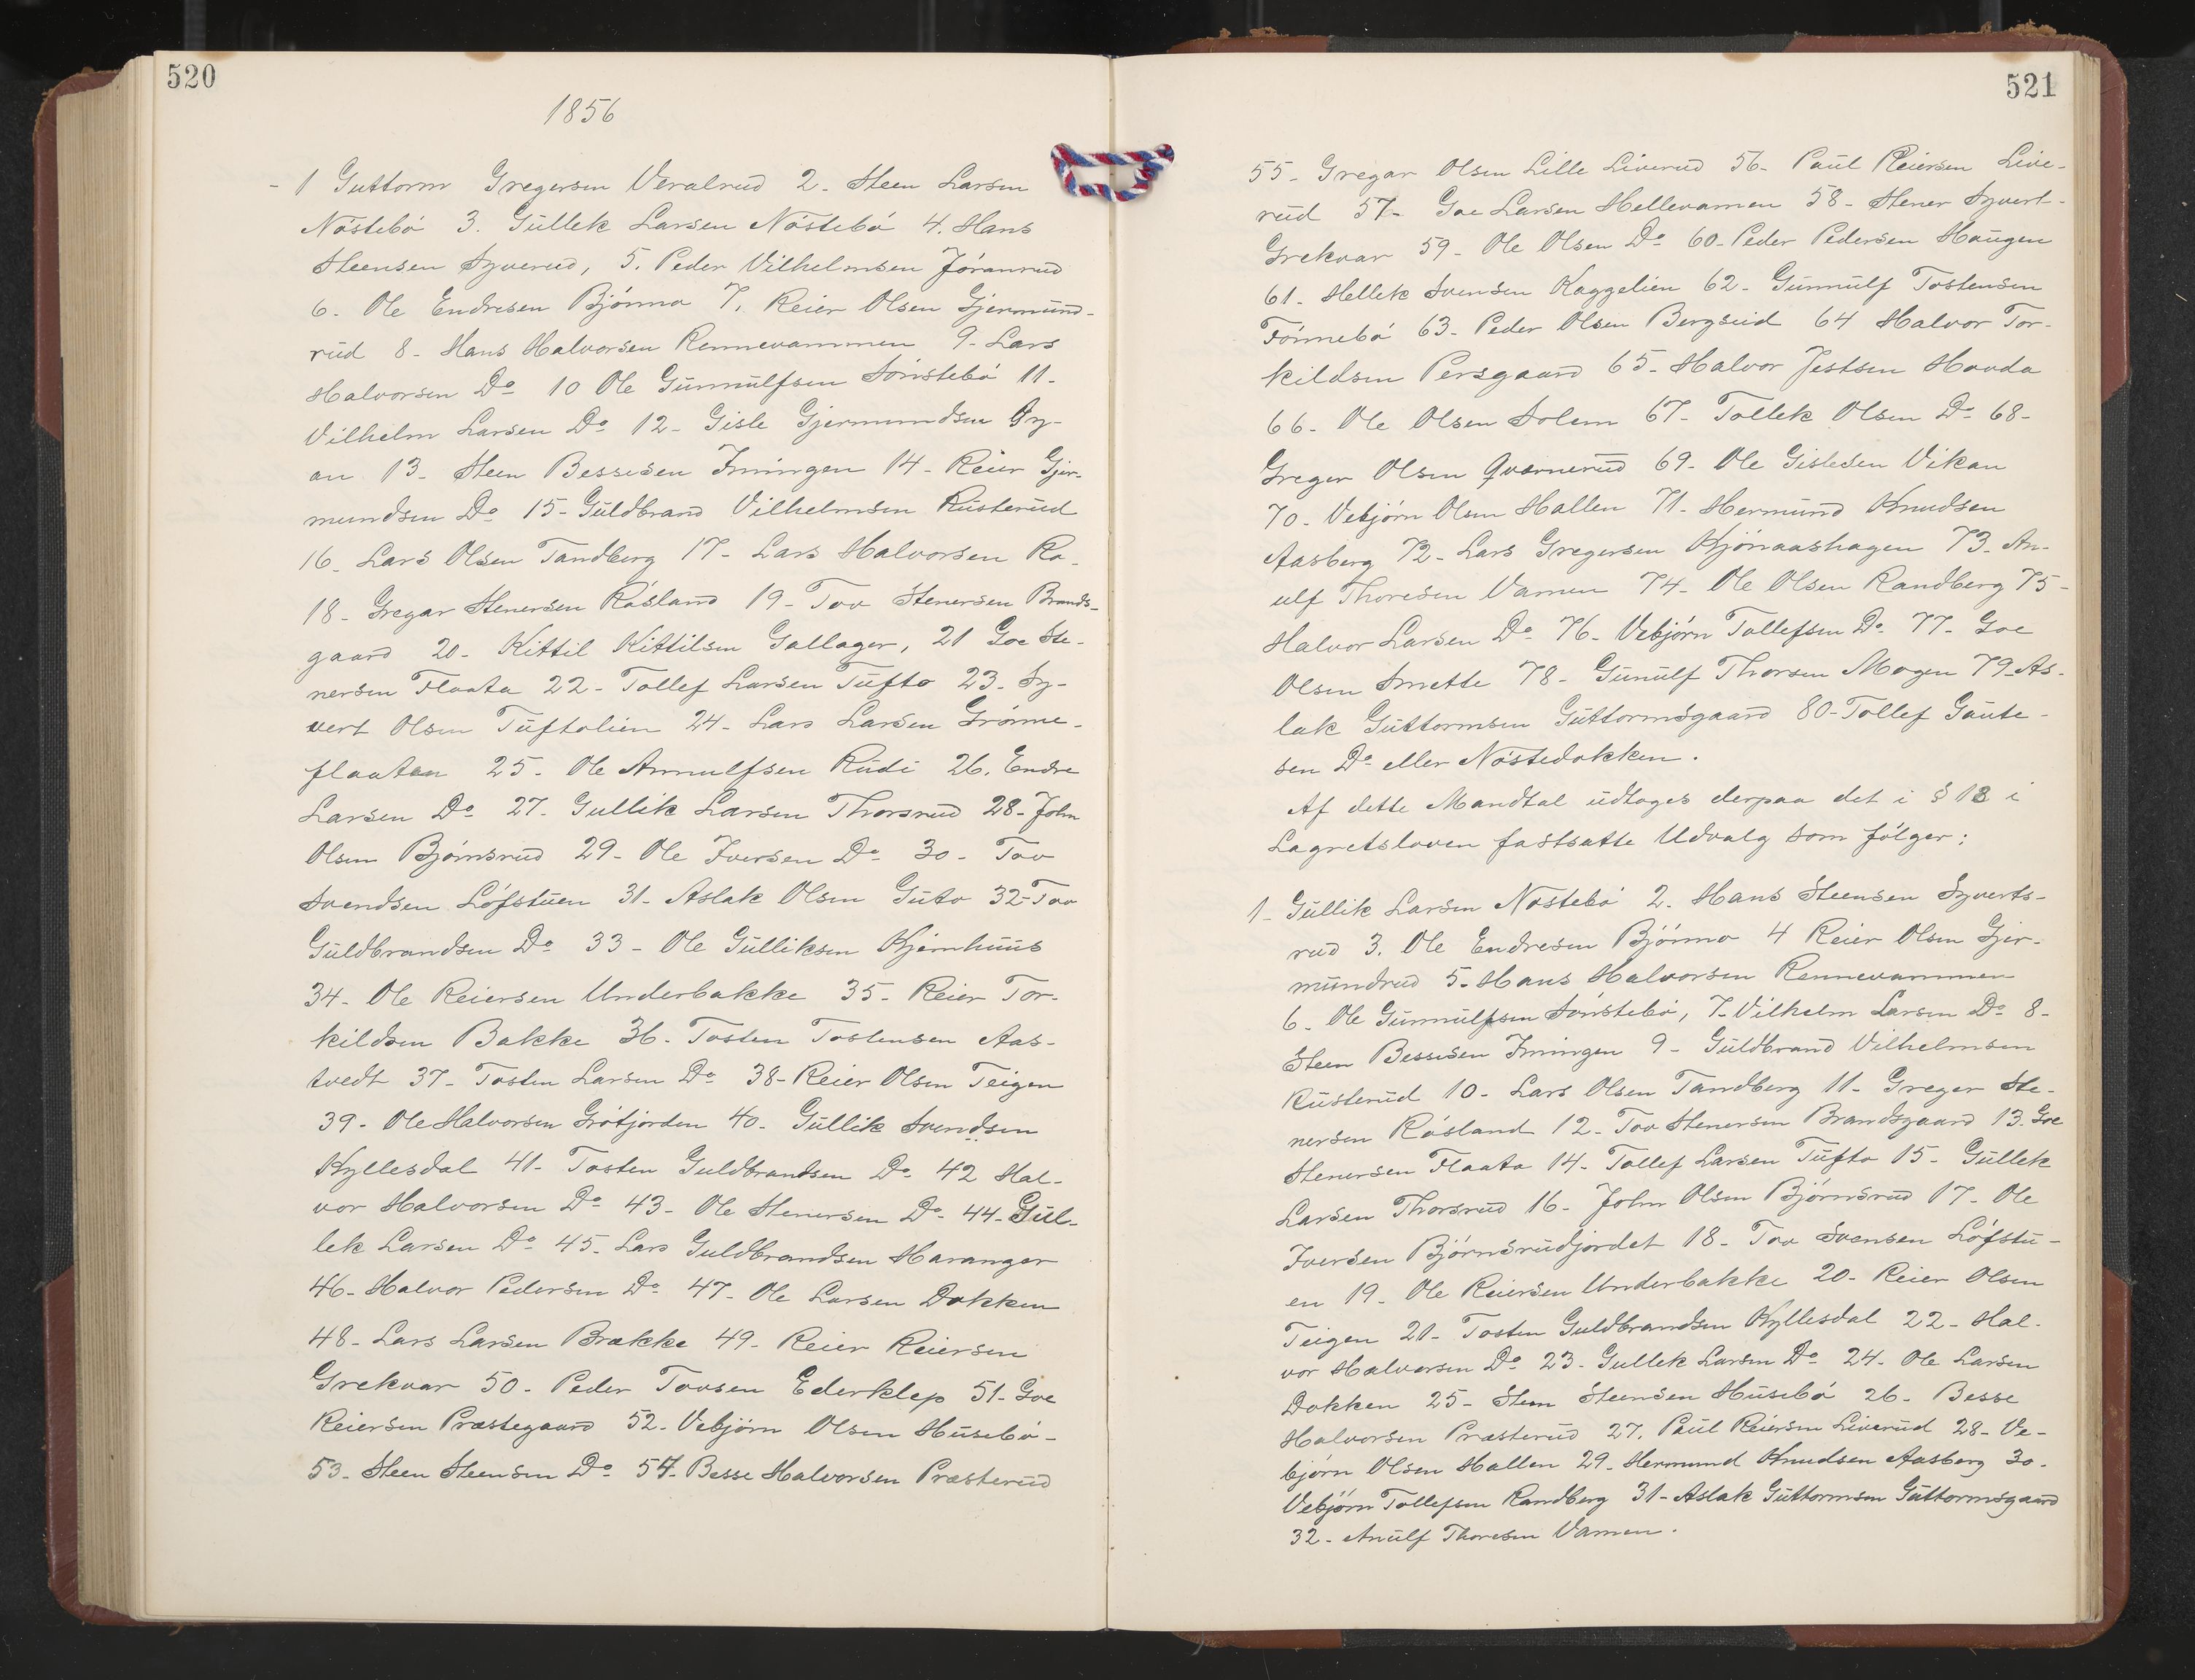 520
1856
- 1 Guttorm Gregersen Veralrud 2. Steen Larsen
Nöstebö 3. Gullek Larsen Nöstebö 4. Hans
Steensen Syverud, 5. Peder Vilhelmsen Jöranrud
6. Ole Endresen Bjönno 7, Reier Olsen Gjermund-
rud 8 - Hans Halvorsen Rennevammen 9 - Lars
Halvorsen Do 10 Ole Gunnulfsen Sönstebö 11 -
Vilhelm Larsen Do 12 - Gisle Gjermundsen By-
an 13 - Steen Bessesen Imingen 14 - Reier Gjer-
mundsen Do 15 - Guldbrand Vilhelmsen Rusterud
16 - Lars Olsen Tandberg 17 - Lars Halvorsen Ro -
18 - Gregar Stenersen Rösland 19 - Tov Stenersen Brands-
gaard 20 - Kittil Kittilsen Gallager, 21 Goe Ste-
nersen Flaata 22 - Tollef Larsen Tufto 23 - Sy-
vert Olsen Tuftolien 24 - Lars Larsen Grönne -
flaaten 25 - Ole Arnnulfsen Rudi 26. Endre
Larsen Do 27 - Gullik Larsen Thorsrud 28 - John
Olsen Bjömsrud 29 - Ole Iversen Do 30 - Tov
Svendsen Löfstuen 31 - Aslak Olsen Guto 32 - Tov
Guldbrandsen Do 33 - Ole Gulliksen Kjemhuus
34 - Ole Reiersen Underbakke 35 - Reier Tor-
kildsen Bakke 36 - Tosten Tostensen Aas-
tvedt 37 - Tosten Larsen Do 38 - Reier Olsen Teigen
39 - Ole Halvorsen Grötjorden 40 - Gullik Svendsen
Kyllesdal 41 - Tosten Guldbrandsen Do 42 Hal-
vor Halvorsen Do 43 - Ole Stenersen Do 44 - Gul-
lek Larsen Do 45 - Lars Guldbrandsen Haranger
46 - Halvor Pedersen Do 47 - Ole Larsen Dokken
48 - Lars Larsen Brække 49 - Reier Reiersen
Grekvar 50 - Peder Tovsen Ederklep 51 - Goe
Reiersen Præstegaard 52 - Vebjörn Olsen Husebö -
53 - Steen Steensen Do 54 - Besse Halvorsen Præsterud
521
55 - Gregar Olsen Lille Liverud 56 - Paul Reiersen Live-
rud 57 - Goe Larsen Hellevamen 58 - Stener Syvert -
Grekvar 59 - Ole Olsen Do 60 - Peder Pedersen Haugen
61 - Hellek Svensen Kaggelien 62 - Gunnulf Tostensen
Fönnebö 63 - Peder Olsen Bergseid 64 Halvor Tor-
kildsen Persgaard 65 - Halvor Jestsen Hovda
66 - Ole Olsen Solem 67 - Tollek Olsen Do 68 -
Greger Olsen Qvarnerud 69 - Ole Gislesen Vikan
70 - Vebjörn Olsen Hallen 71 - Hermund Knudsen
Aasberg 72 - Lars Gregersen Kjönaashagen 73 - An-
ulf Thoresen Vamen 74 - Ole Olsen Randberg 75 -
Halvor Larsen Do 76 - Vebjörn Tollefsen Do 77 - Goe
Olsen Smette 78 - Gunulf Thorsen Mogen 79 - As-
lak Guttormsen Guttormsgaard 80 - Tollef Gaute -
sen Do eller Nöstedokken.
Af dette Mandtal udtoges derpaa det i § 13 i
Lagretsloven fastsatte Udvalg som fölger:
1 - Gullik Larsen Nöstebö 2. Hans Steensen Syverts-
rud 3. Ole Endresen Bjönno 4 Reier Olsen Gjer-
mundrud 5 - Hans Halvorsen Rennevammen
6 - Ole Gunnulfsen Sönstebö, 7 - Vilhelm Larsen Do 8 -
Steen Bessesen Imingen 9 - Guldbrand Vilhelmsen
Rusterud 10 - Lars Olsen Tandberg 11 - Greger Ste-
nersen Rösland 12 - Tov Stenersen Brandsgaard 13. Goe
Stenersen Flaata 14 - Tollef Larsen Tufto 15 - Gullek
Larsen Thorsrud 16 - John Olsen Björnsrud 17 - Ole
Iversen Björnsrudjordet 18 - Tov Svensen Löfstu -
en 19 - Ole Reiersen Underbakke 20 - Reier Olsen
Teigen 21 - Tosten Guldbrandsen Kyllesdal 22 - Hal-
vor Halvorsen Do 23 - Gullek Larsen Do 24 - Ole Larsen
Dokken 25 - Steen Steensen Husebö 26 - Besse
Halvorsen Præsterud 27. Paul Reiersen Liverud 28 - Ve-
björn Olsen Hallen 29 - Hermund Knudsen Aasberg 30 -
Vebjörn Tollefsen Randberg 31 - Aslak Guttormsen Guttormsgaard
32 - Anulf Thoresen Vamen.